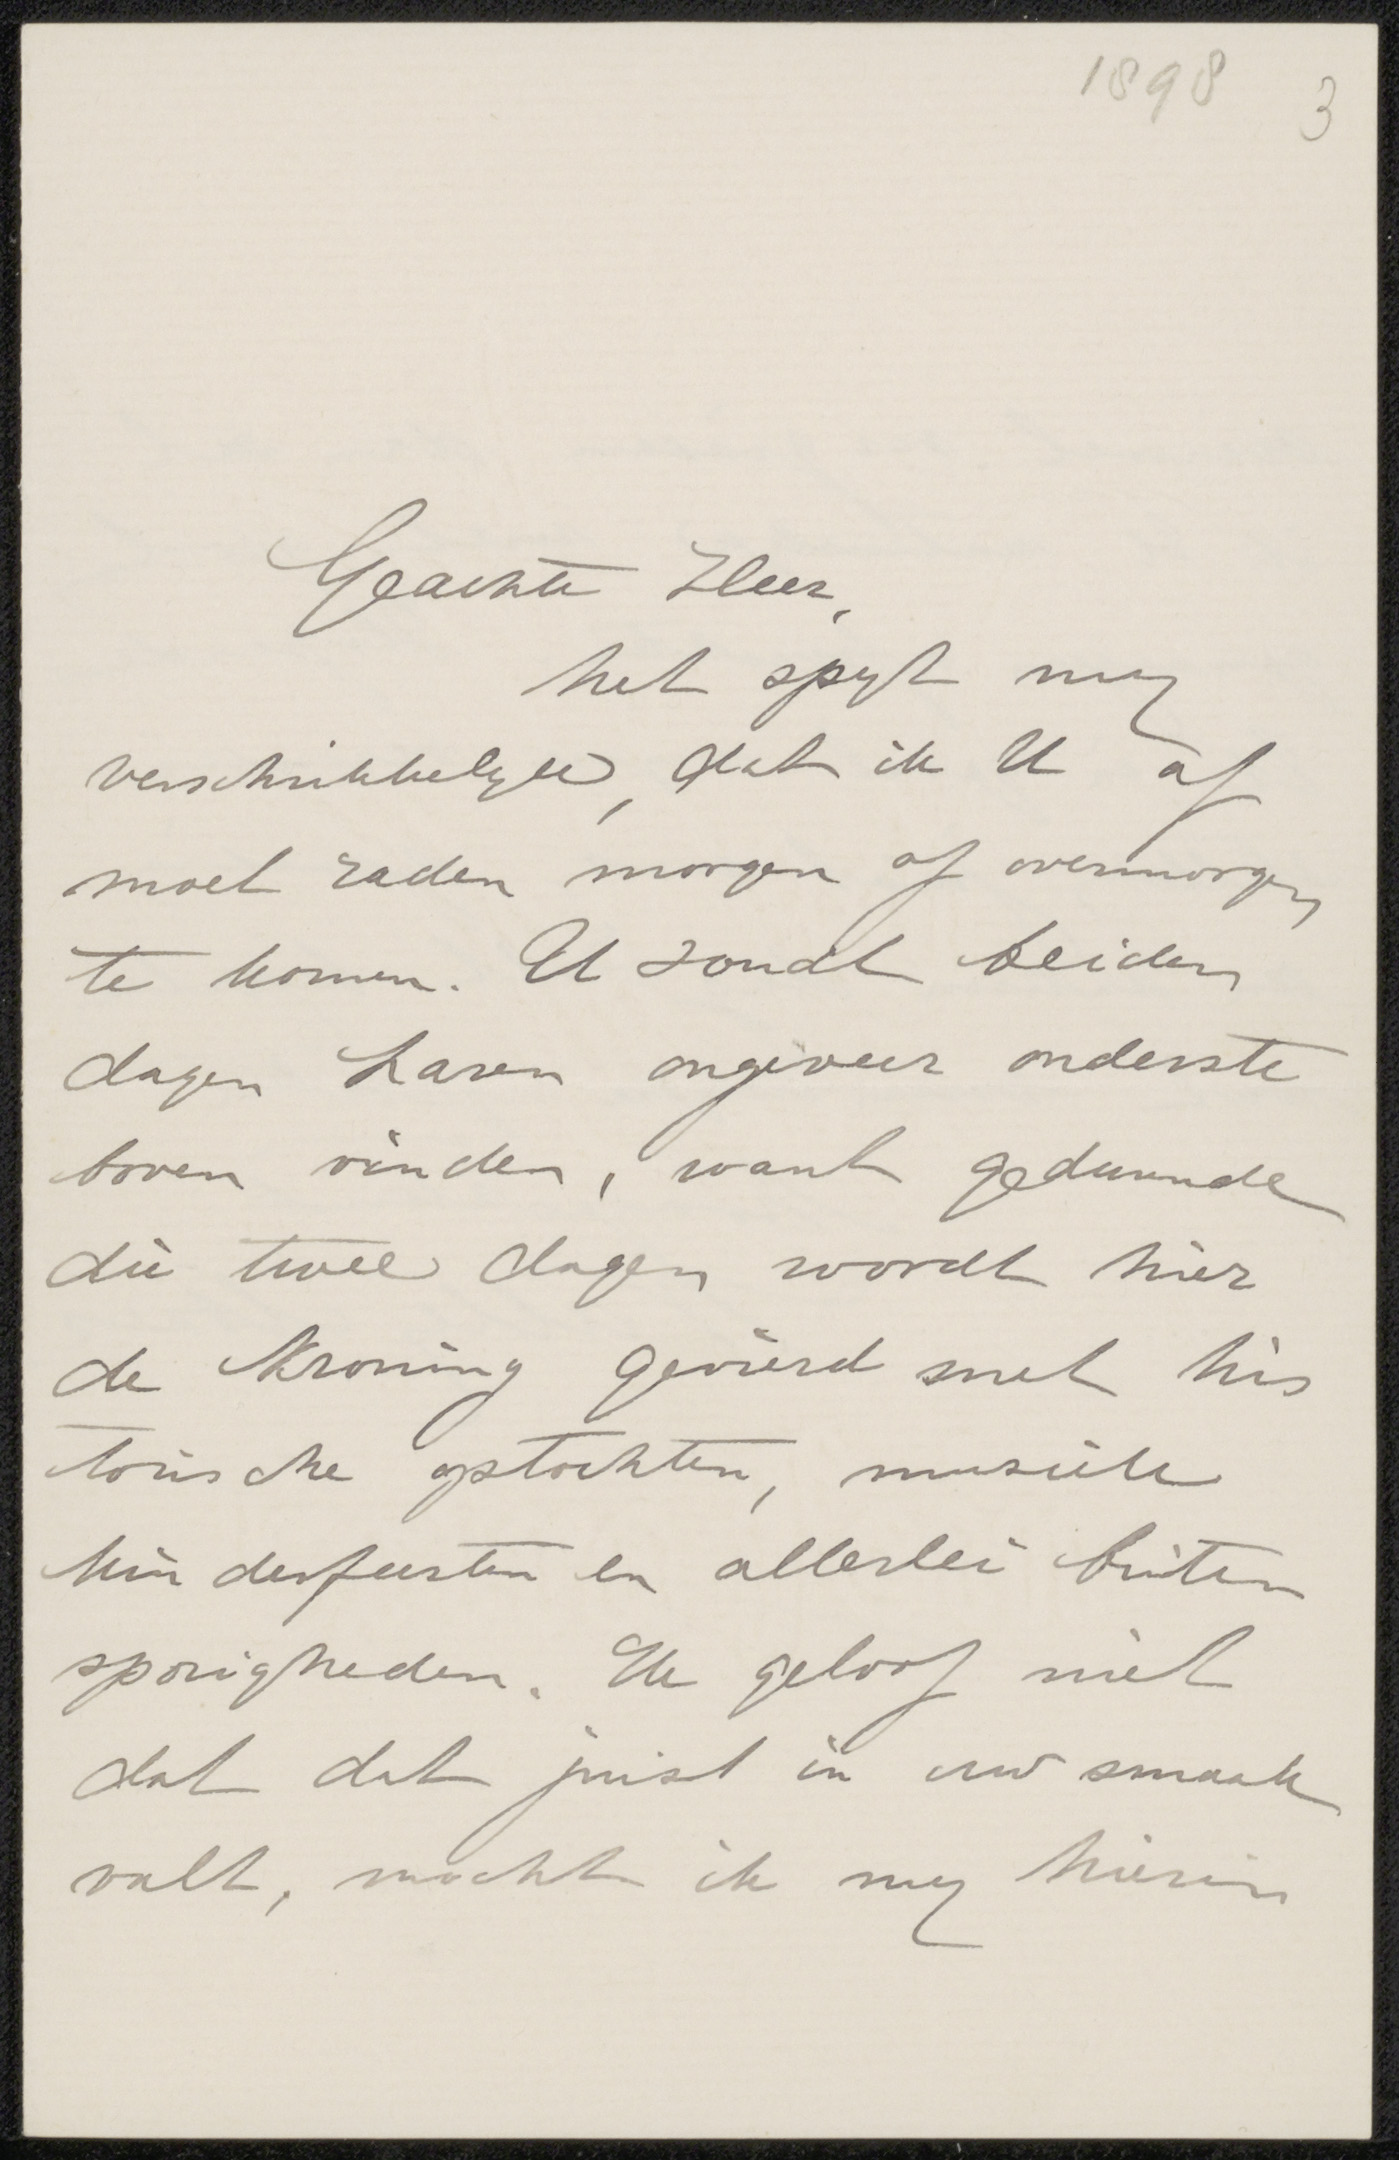 1898 3
Geachte Heer,
het spyt my
verschrikkelyk, dat ik U af
moet raden morgen of overmorgen
te komen. U zoudt beiden
dagen Laren ongeveer onderste
boven vinden, want gedurende
die twee dagen wordt hier
de Kroning gevierd met his
torische optochten, musiek
kinderfeesten en allerlei buiten
sporigheden. Ik geloof niet
dat dat juist in uw smaak
valt, mocht ik my hierin